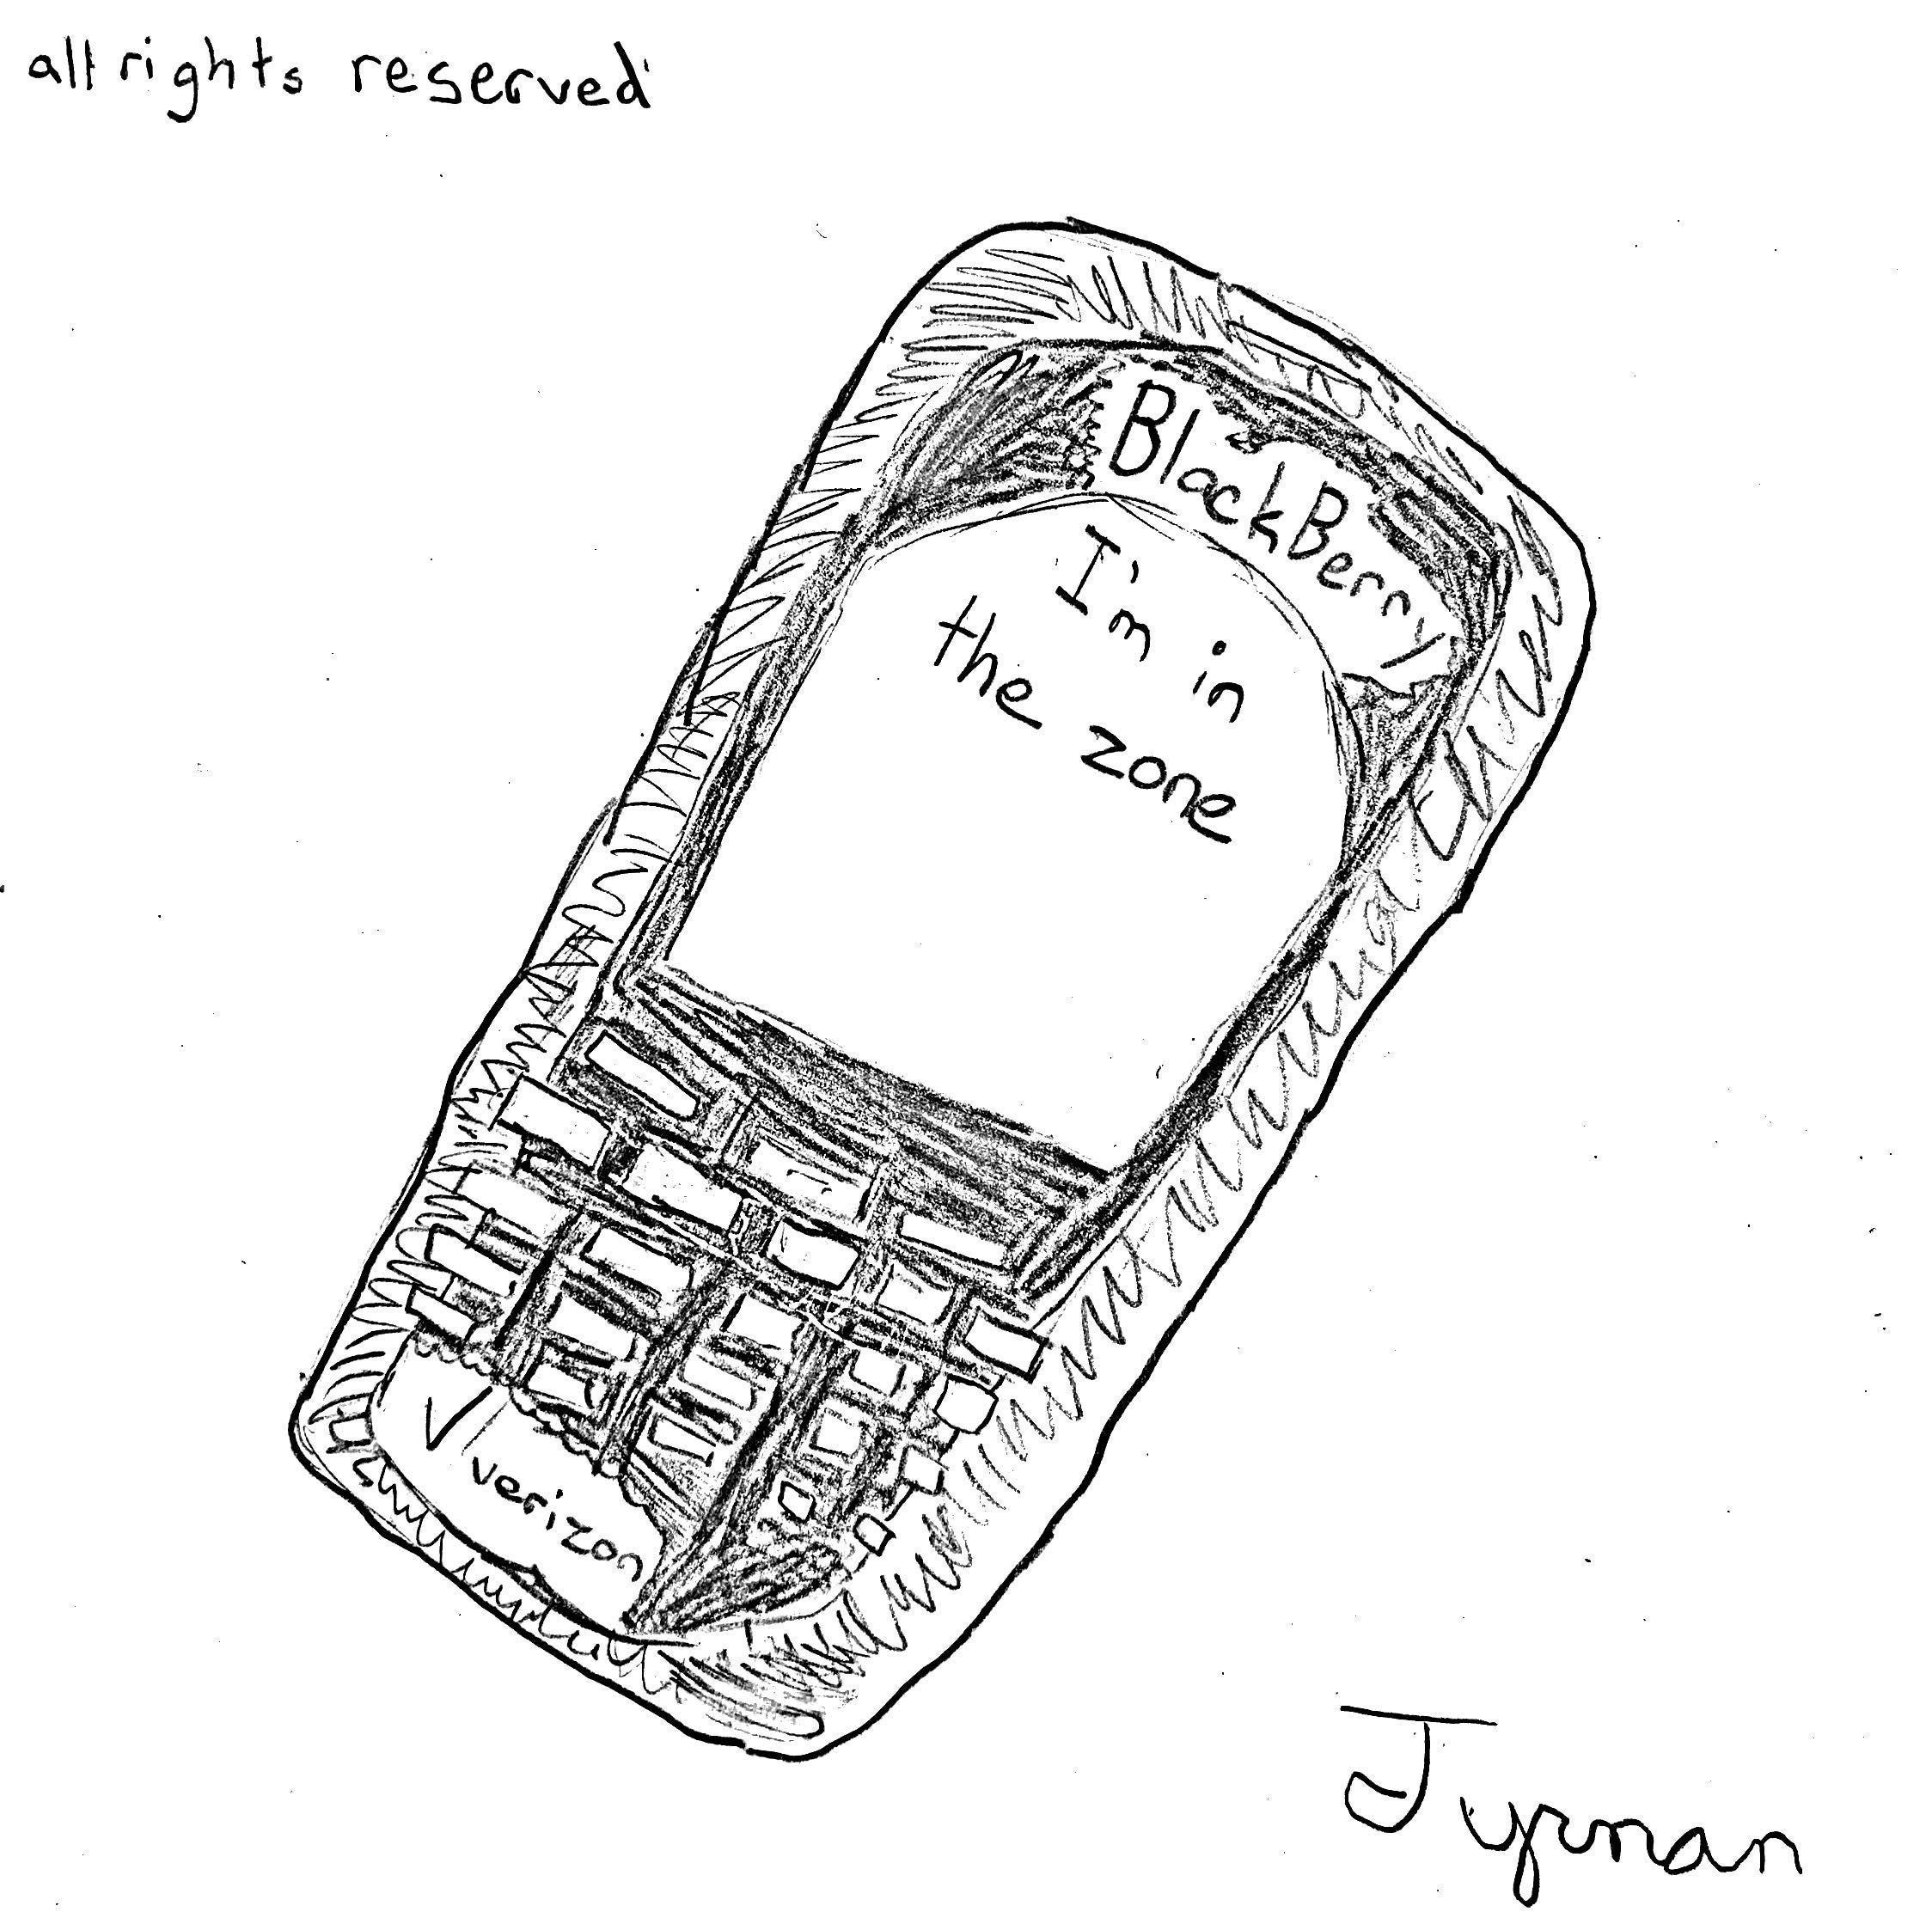 all rights reserved
BlackBerry
I'm in
the zone
verizon
Jyrman